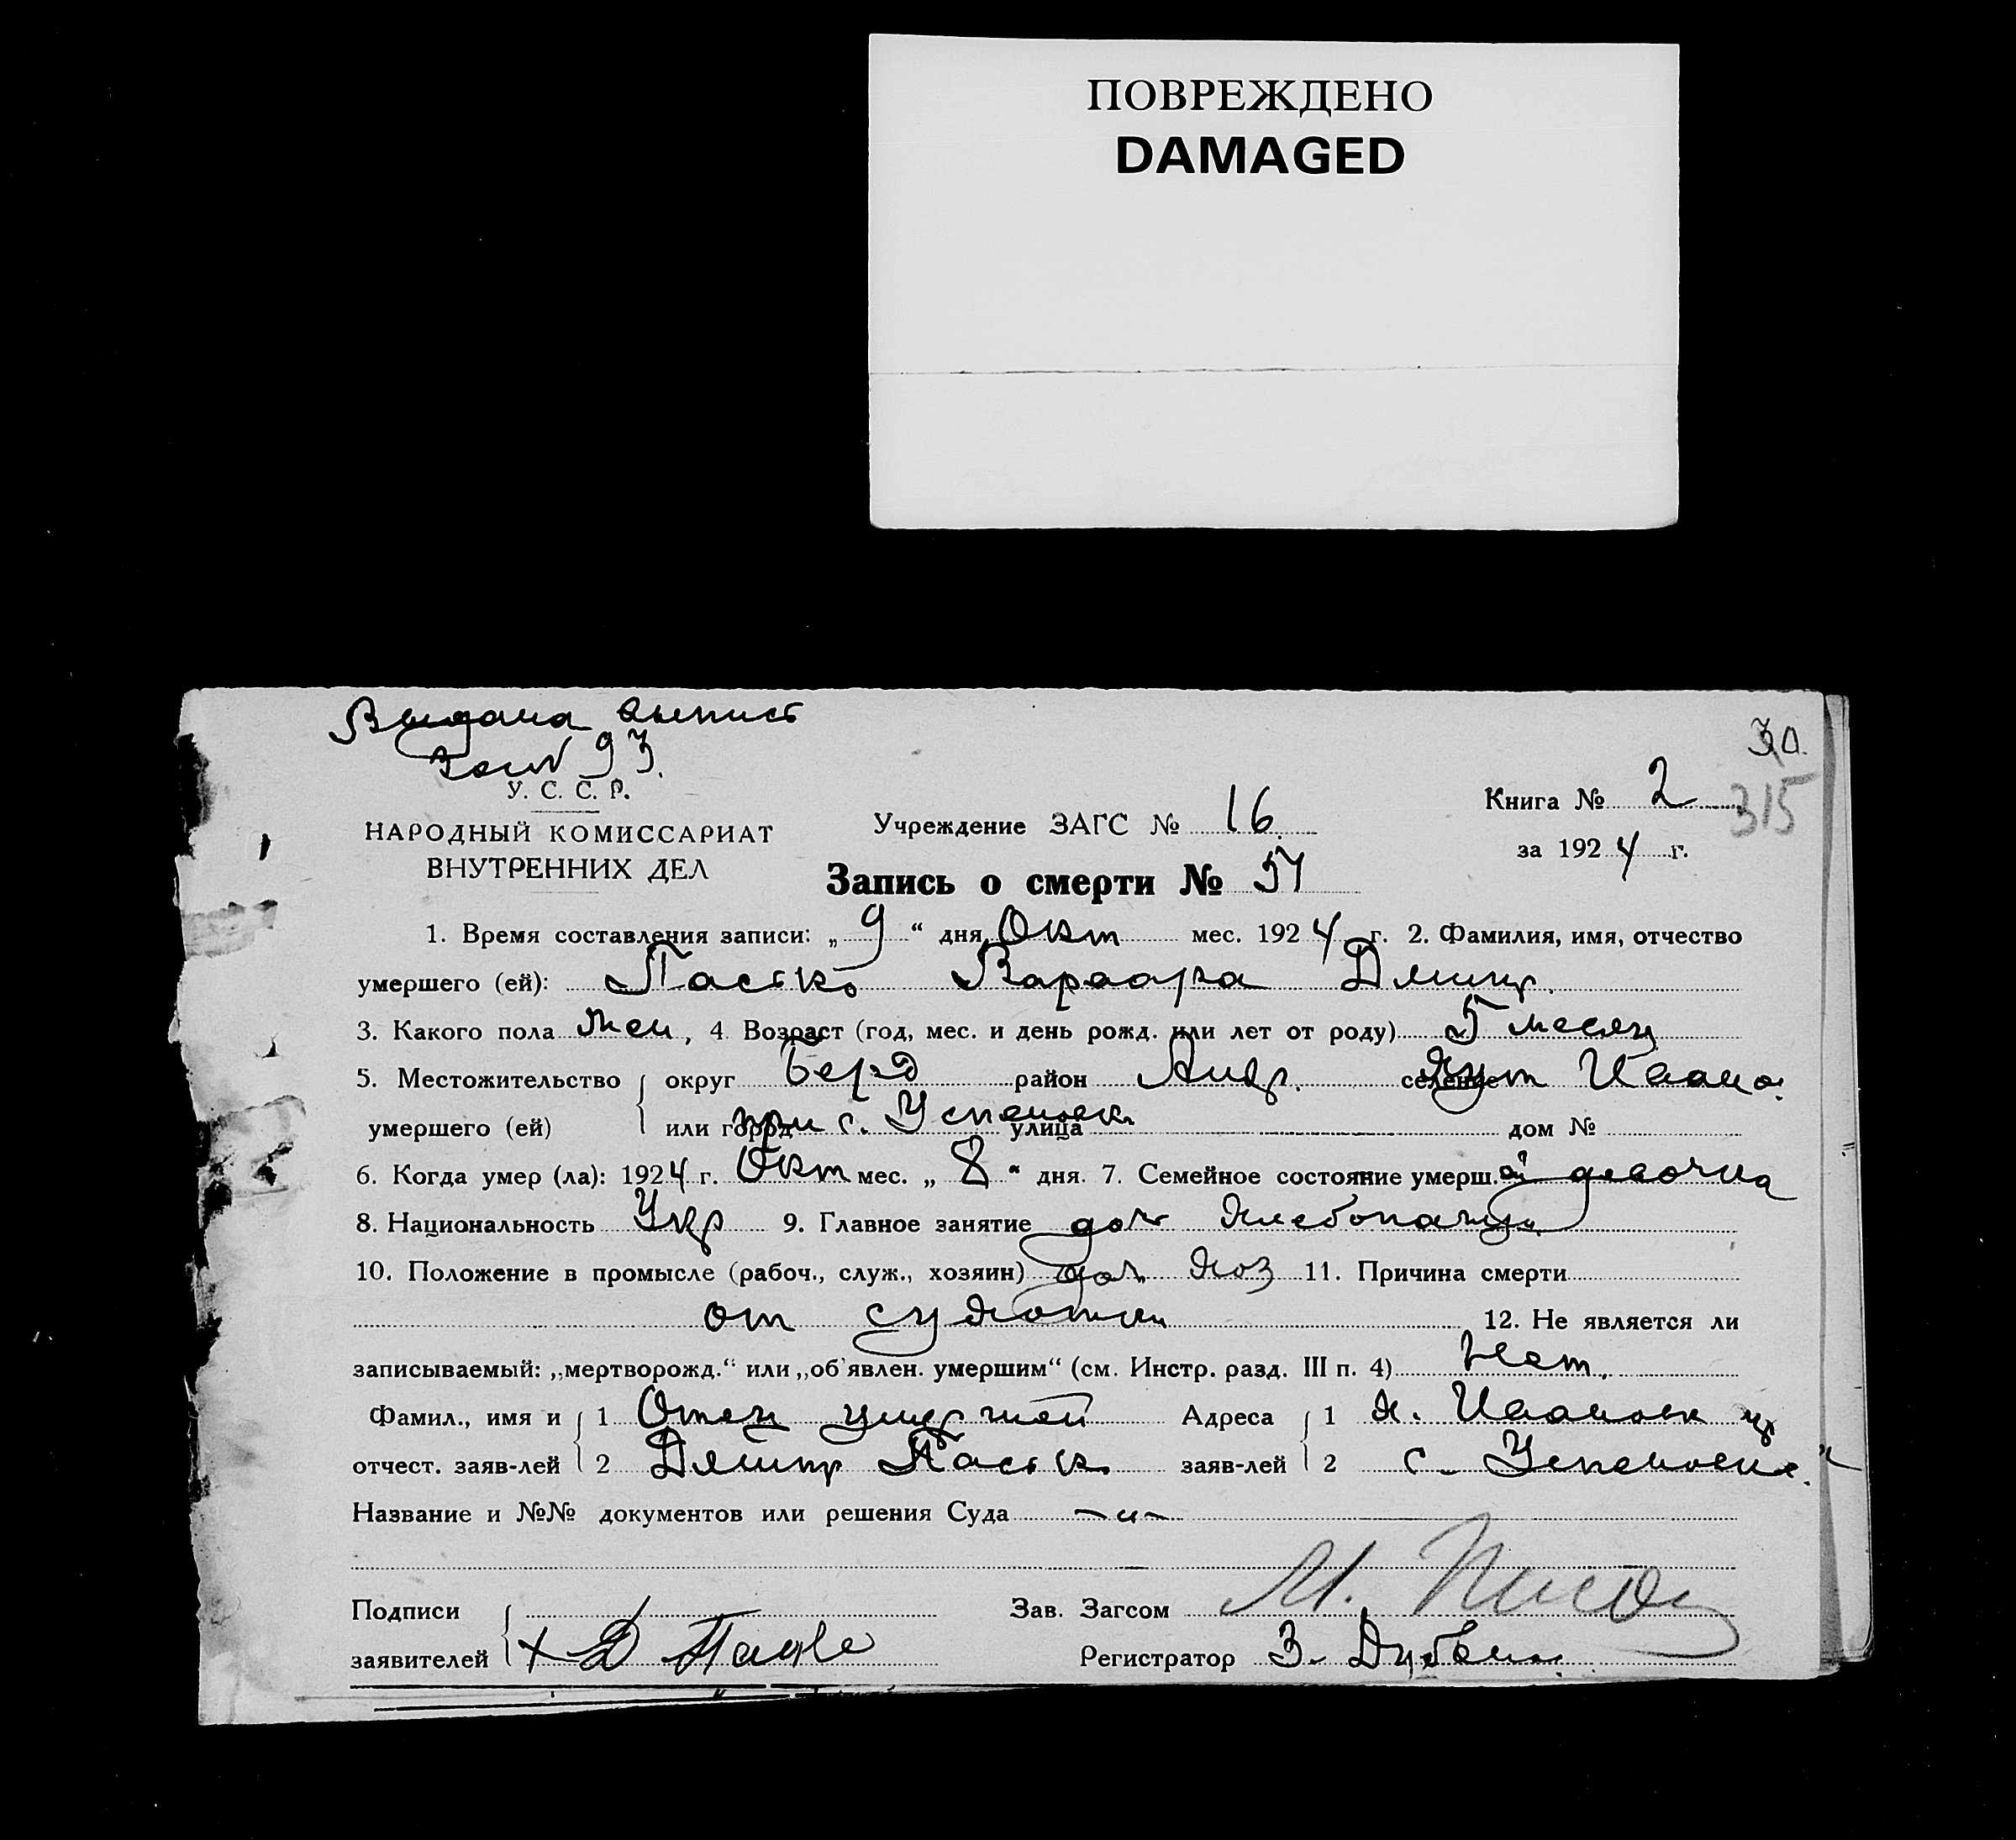 ПОВРЕЖДЕНО
DAMAGED
Выдана выпись
за № 93.
30.
315
У. С. С. Р.
НАРОДНЫЙ КОМИССАРИАТ
ВНУТРЕННИХ ДЕЛ
Учреждение ЗАГС № 16
Книга № 2
за 1924 г.
Запись о смерти № 51
1. Время составления записи: „ 9 “ дня Окт мес. 1924 г. 2. Фамилия, имя, отчество
умершего (ей): Пастко Варвара Дмитр.
3. Какого пола жен, 4 Возраст (год, мес. и день рожд. или лет от роду) 5 месяц
5. Местожительство округ Берд район Андр. селение хут Ивано.
умершего (ей) или город при с. Успеновк улица дом №
6. Когда умер (ла): 1924 г. Окт мес. „ 8 “ дня. 7. Семейное состояние умерш.ой девочка
8. Национальность Укр 9. Главное занятие доч хлебопашца
10. Положение в промысле (рабоч., служ., хозяин) доч. хоз 11. Причина смерти
от сухотки 12. Не является ли
записываемый: „мертворожд.“ или „об'явлен. умершим“ (см. Инстр. разд. III п. 4) Нет.
Фамил., имя и 1 Отец умершой Адреса 1 х. Ивановк
отчест. заяв-лей 2 Дмитр Пастко заяв-лей 2 с. Успеновке.
Название и №№ документов или решения Суда -"-
Подписи Зав. Загсом М.
заявителей + Д Регистратор З.